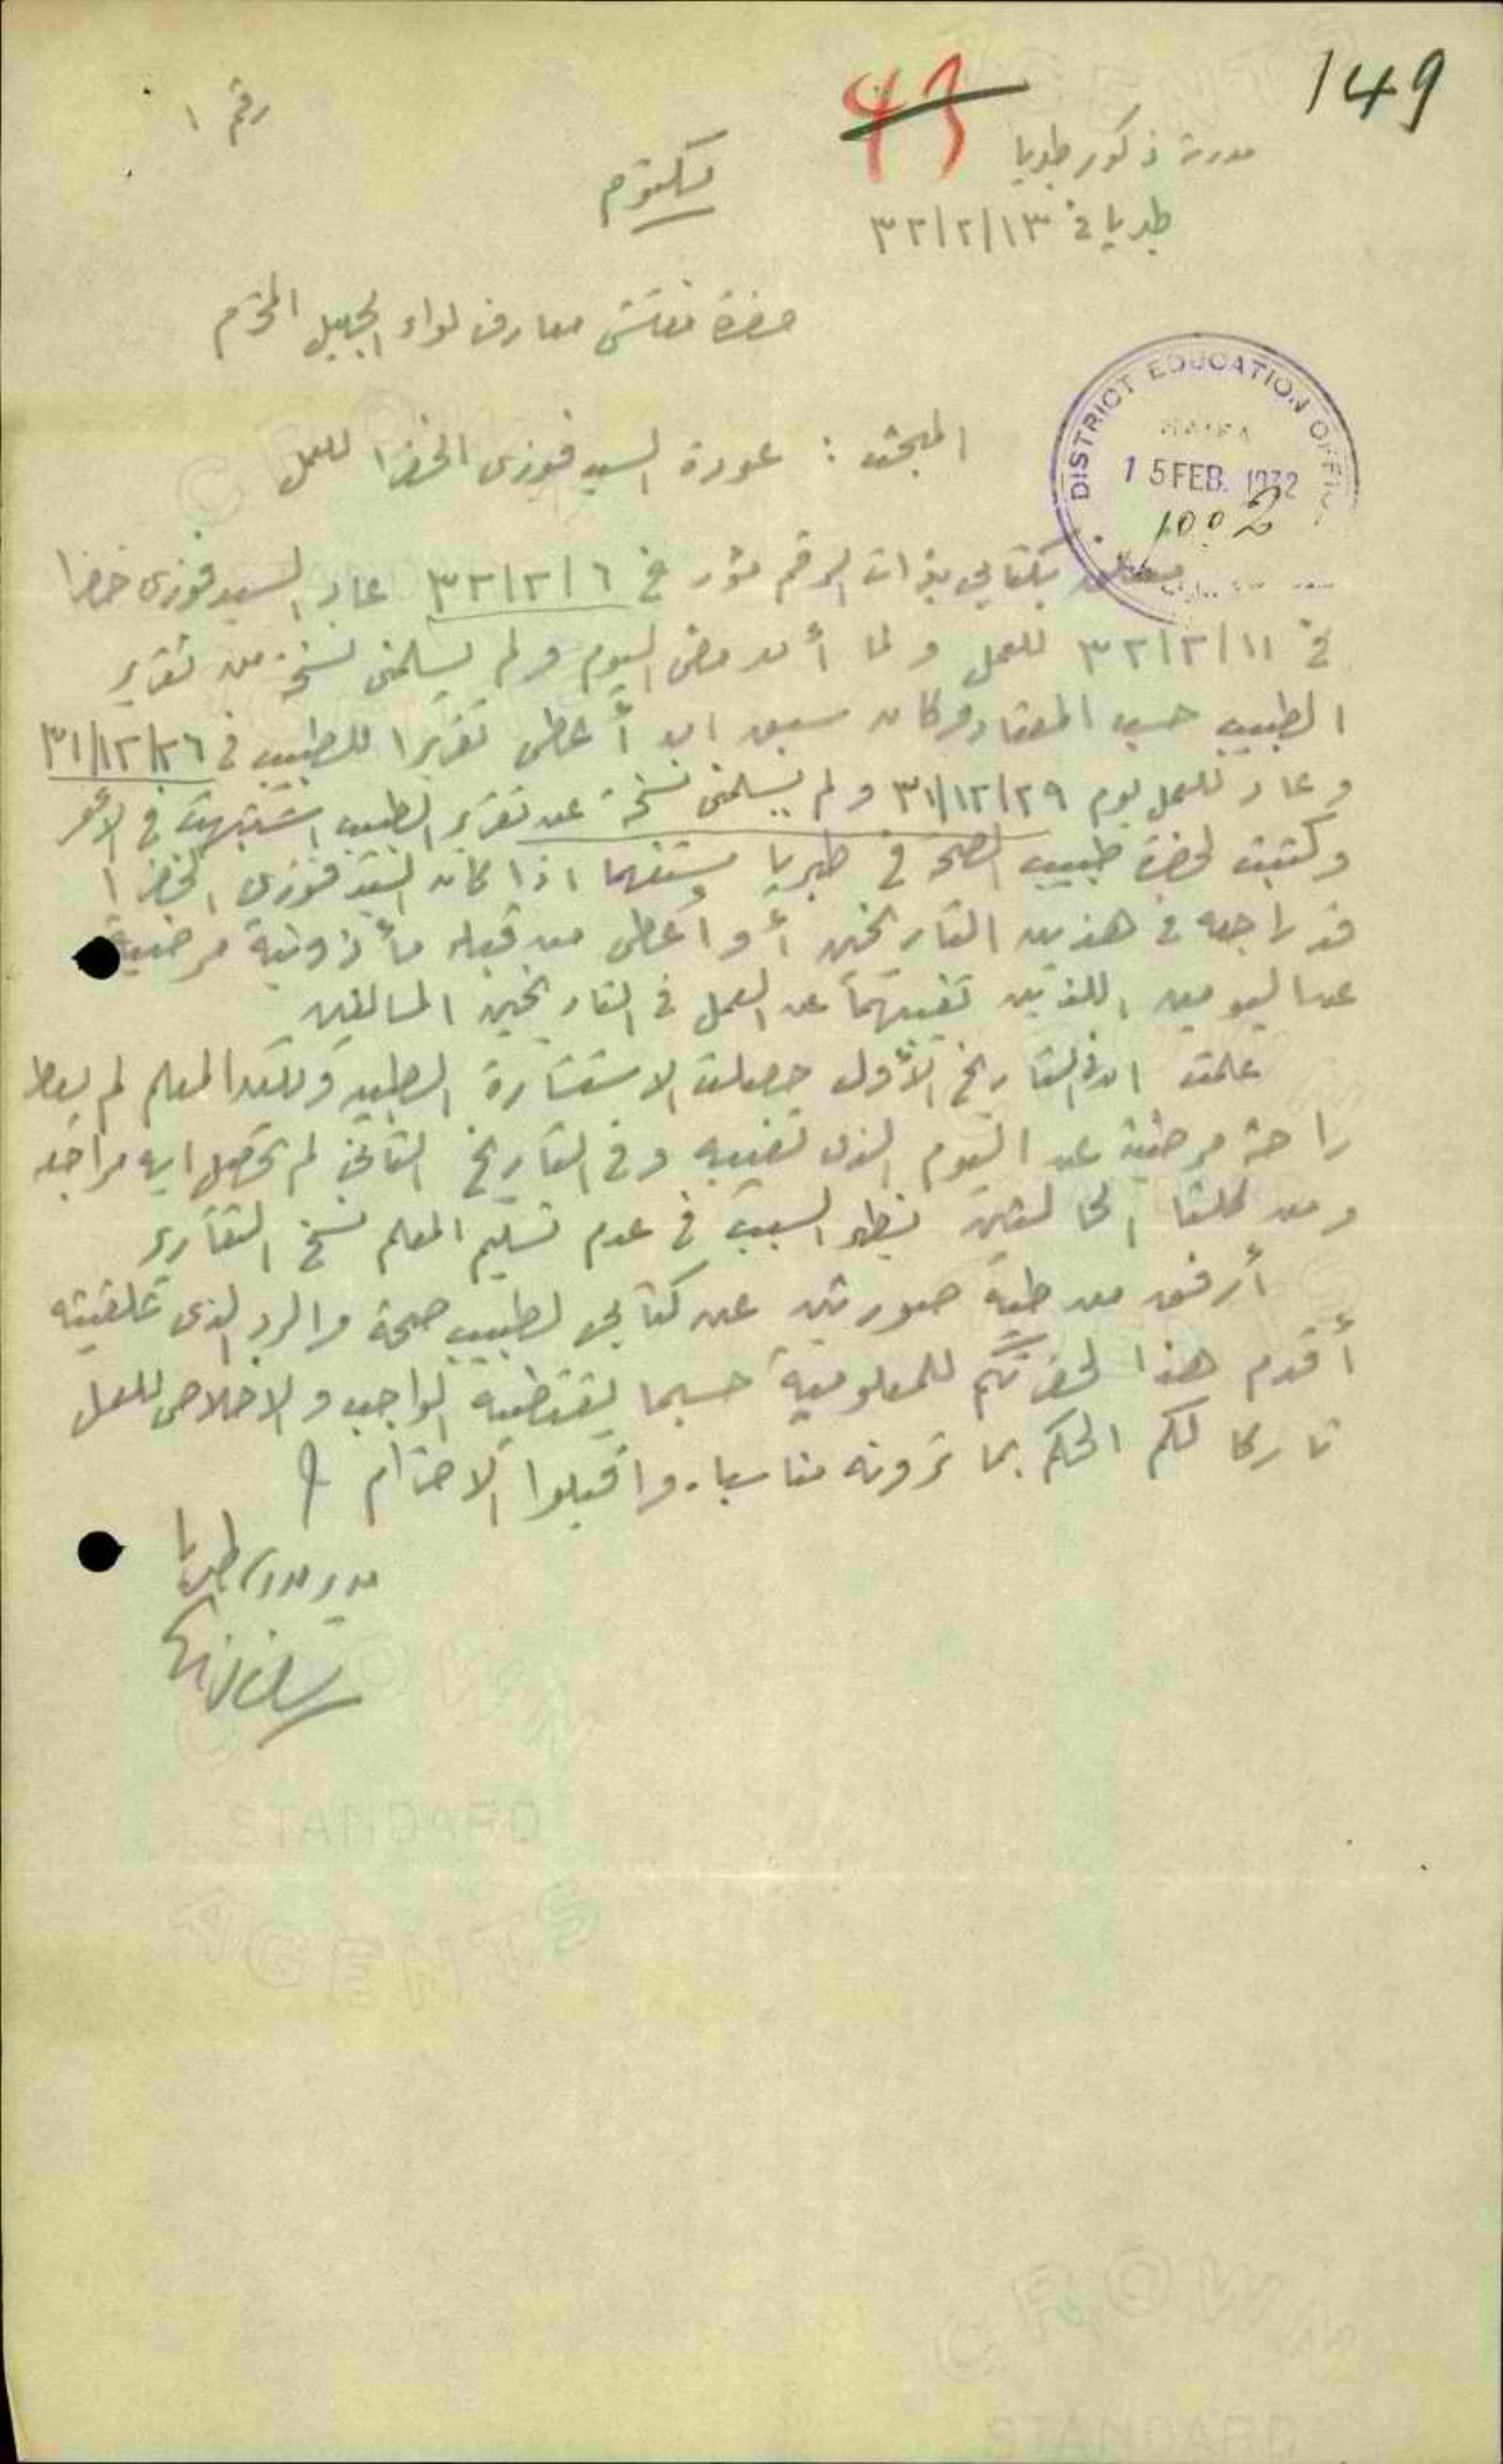 149
43
رقم ١
مدرسة ذكور طبريا
مكتوم
طبريا في ٣٢/٢/١٣
حضرة مفتش معارف لواء الجليل المحترم
DISTRICT EDUCATION OFFICE
HAIFA
15 FEB. 1932
1002
المبحث : عودة السيد فوزي الخضرا للعمل
بكتابي بذات الرقم مؤرخ في ٣٢/٢/٦ عاد السيد فوزي خضرا
في ٣٢/٢/١١ للعمل ولما أن مضى اليوم ولم يسلمني نسخة من تقرير
الطبيب حسب المعتاد وكان سبق ان أعطى تقريرا للطبيب في ٣١/١٢/٢٦
وعاد للعمل يوم ٣١/١٢/٢٩ ولم يسلمني نسخة عن تقرير الطبيب اشتبهت في الأمر
وكتبت لحضرة طبيب الصحة في طبريا مستفهما اذا كان السيد فوزي الخضرا
قد راجعه في هذين التاريخين أو أعطى من قبله مأذونية مرضية
عن اليومين اللذين تغيبهما عن العمل في التاريخين السالفين
علمت ان في التاريخ الأول حصلت الاستشارة الطبية ولكن المعلم لم يعط
راحة مرضية عن اليوم الذي تغيبه وفي التاريخ الثاني لم تحصل اية مراجعة
ومن كلتا الحالتين يظهر السبب في عدم تسليم المعلم نسخ التقارير
أرفق من طيه صورتين عن كتابي لطبيب صحة والرد الذي تلقيته
أقدم هذا لحضرتكم للمعلومية حسبما يقتضيه الواجب والاخلاص للعمل
تاركا لكم الحكم بما ترونه مناسبا. واقبلوا الاحترام
مدير مدرسة طبريا